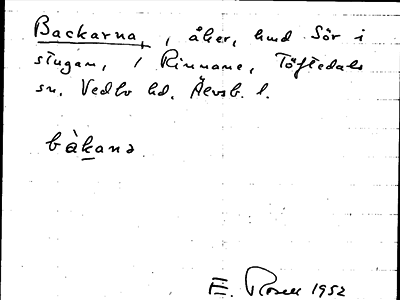 Backarna, , åker, hmd Sör i
stugan, / Rinnane, Töftedals
sn. Vedbo hd. Älvsb. l.
bàkana
E. Rosell 1952